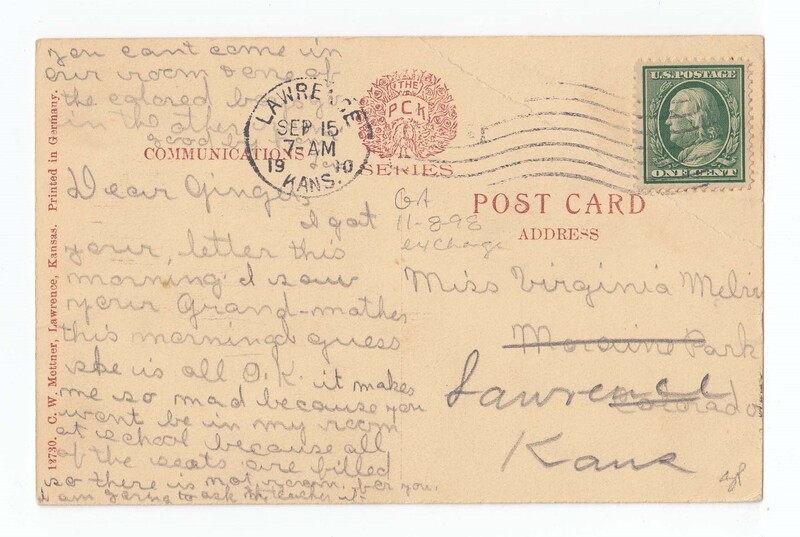 you cant come in
our room some of
the colored boys go
in the other room
good by from
COMMUNICATIONS
Dear Ginger
I got
your, letter this
morning I saw
your Grand-mother
this morning guess
she is all O.K. it makes
me so mad because you
wont be in my room
at school because all
of the seats are filled
so there is not room for you.
I am going to ask my teacher if
LAWRENCE
SEP 15
7-AM
1910
KANS.
THE
PCK
SERIES
U.S. POSTAGE
ONE CENT
GA
11-8-98
exchange
POST CARD
ADDRESS
Miss Virginia
Moraine Park
Colorado
Lawrence
Kans
12730. C. W. Mettner, Lawrence, Kansas. Printed in Germany.